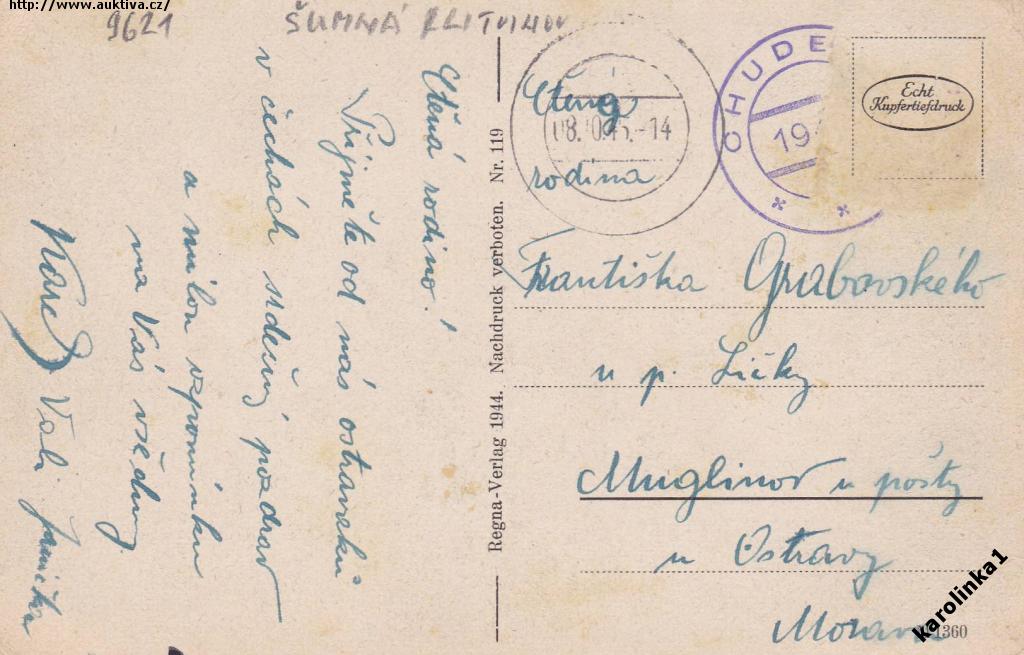 http://www.auktiva.cz/
9621
ŠUMNÁ
Ctěná rodino!
Přijměte od nás ostraváků
v čechách srdečný pozdrav
a milou vzpomínku
na Vás všechny
Karel Vali Jamička
Regna-Verlag 1944. Nachdruck verboten. Nr. 119
CHUDE
19
-14
Echt
Kupfertiefdruck
Ctěná
rodina
Františka Grabovského
u p. Ličky
Muglinov u pošty
u Ostravy
Morava
1360
karolinka1